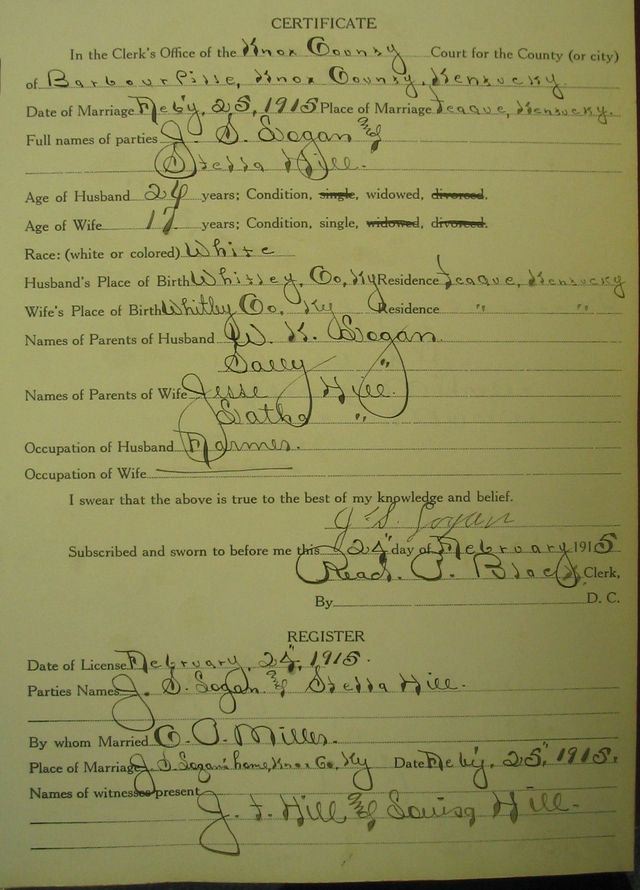 CERTIFICATE
In the Clerk's Office of the Knox County Court for the County (or city)
of Barbourville, Knox County, Kentucky.
Date of Marriage Feb'y, 25, 1915 Place of Marriage Teague, Kentucky.
Full names of parties J. S. Logan and
Stella Hill.
Age of Husband 24 years; Condition, single, widowed, divorced.
Age of Wife 17 years; Condition, single, widowed, divorced.
Race: (white or colored) White
Husband's Place of Birth Whitley, Co, Ky Residence Teague, Kentucky
Wife's Place of Birth Whitley Co, Ky Residence " "
Names of Parents of Husband W. K. Logan.
Sally "
Names of Parents of Wife Jesse Hill.
"
Occupation of Husband Farmer.
Occupation of Wife
I swear that the above is true to the best of my knowledge and belief.
J. S. Logan
Subscribed and sworn to before me this 24" day of February 1915
Read P. Black, Clerk,
By D. C.
REGISTER
Date of License February, 24", 1915.
Parties Names J. S. Logan & Stella Hill.
By whom Married Miller.
Place of Marriage J. S. Logan's home, Knox Co, Ky Date Feb'y, 25", 1915.
Names of witnesses present
J. F. Hill and Louisa Hill.